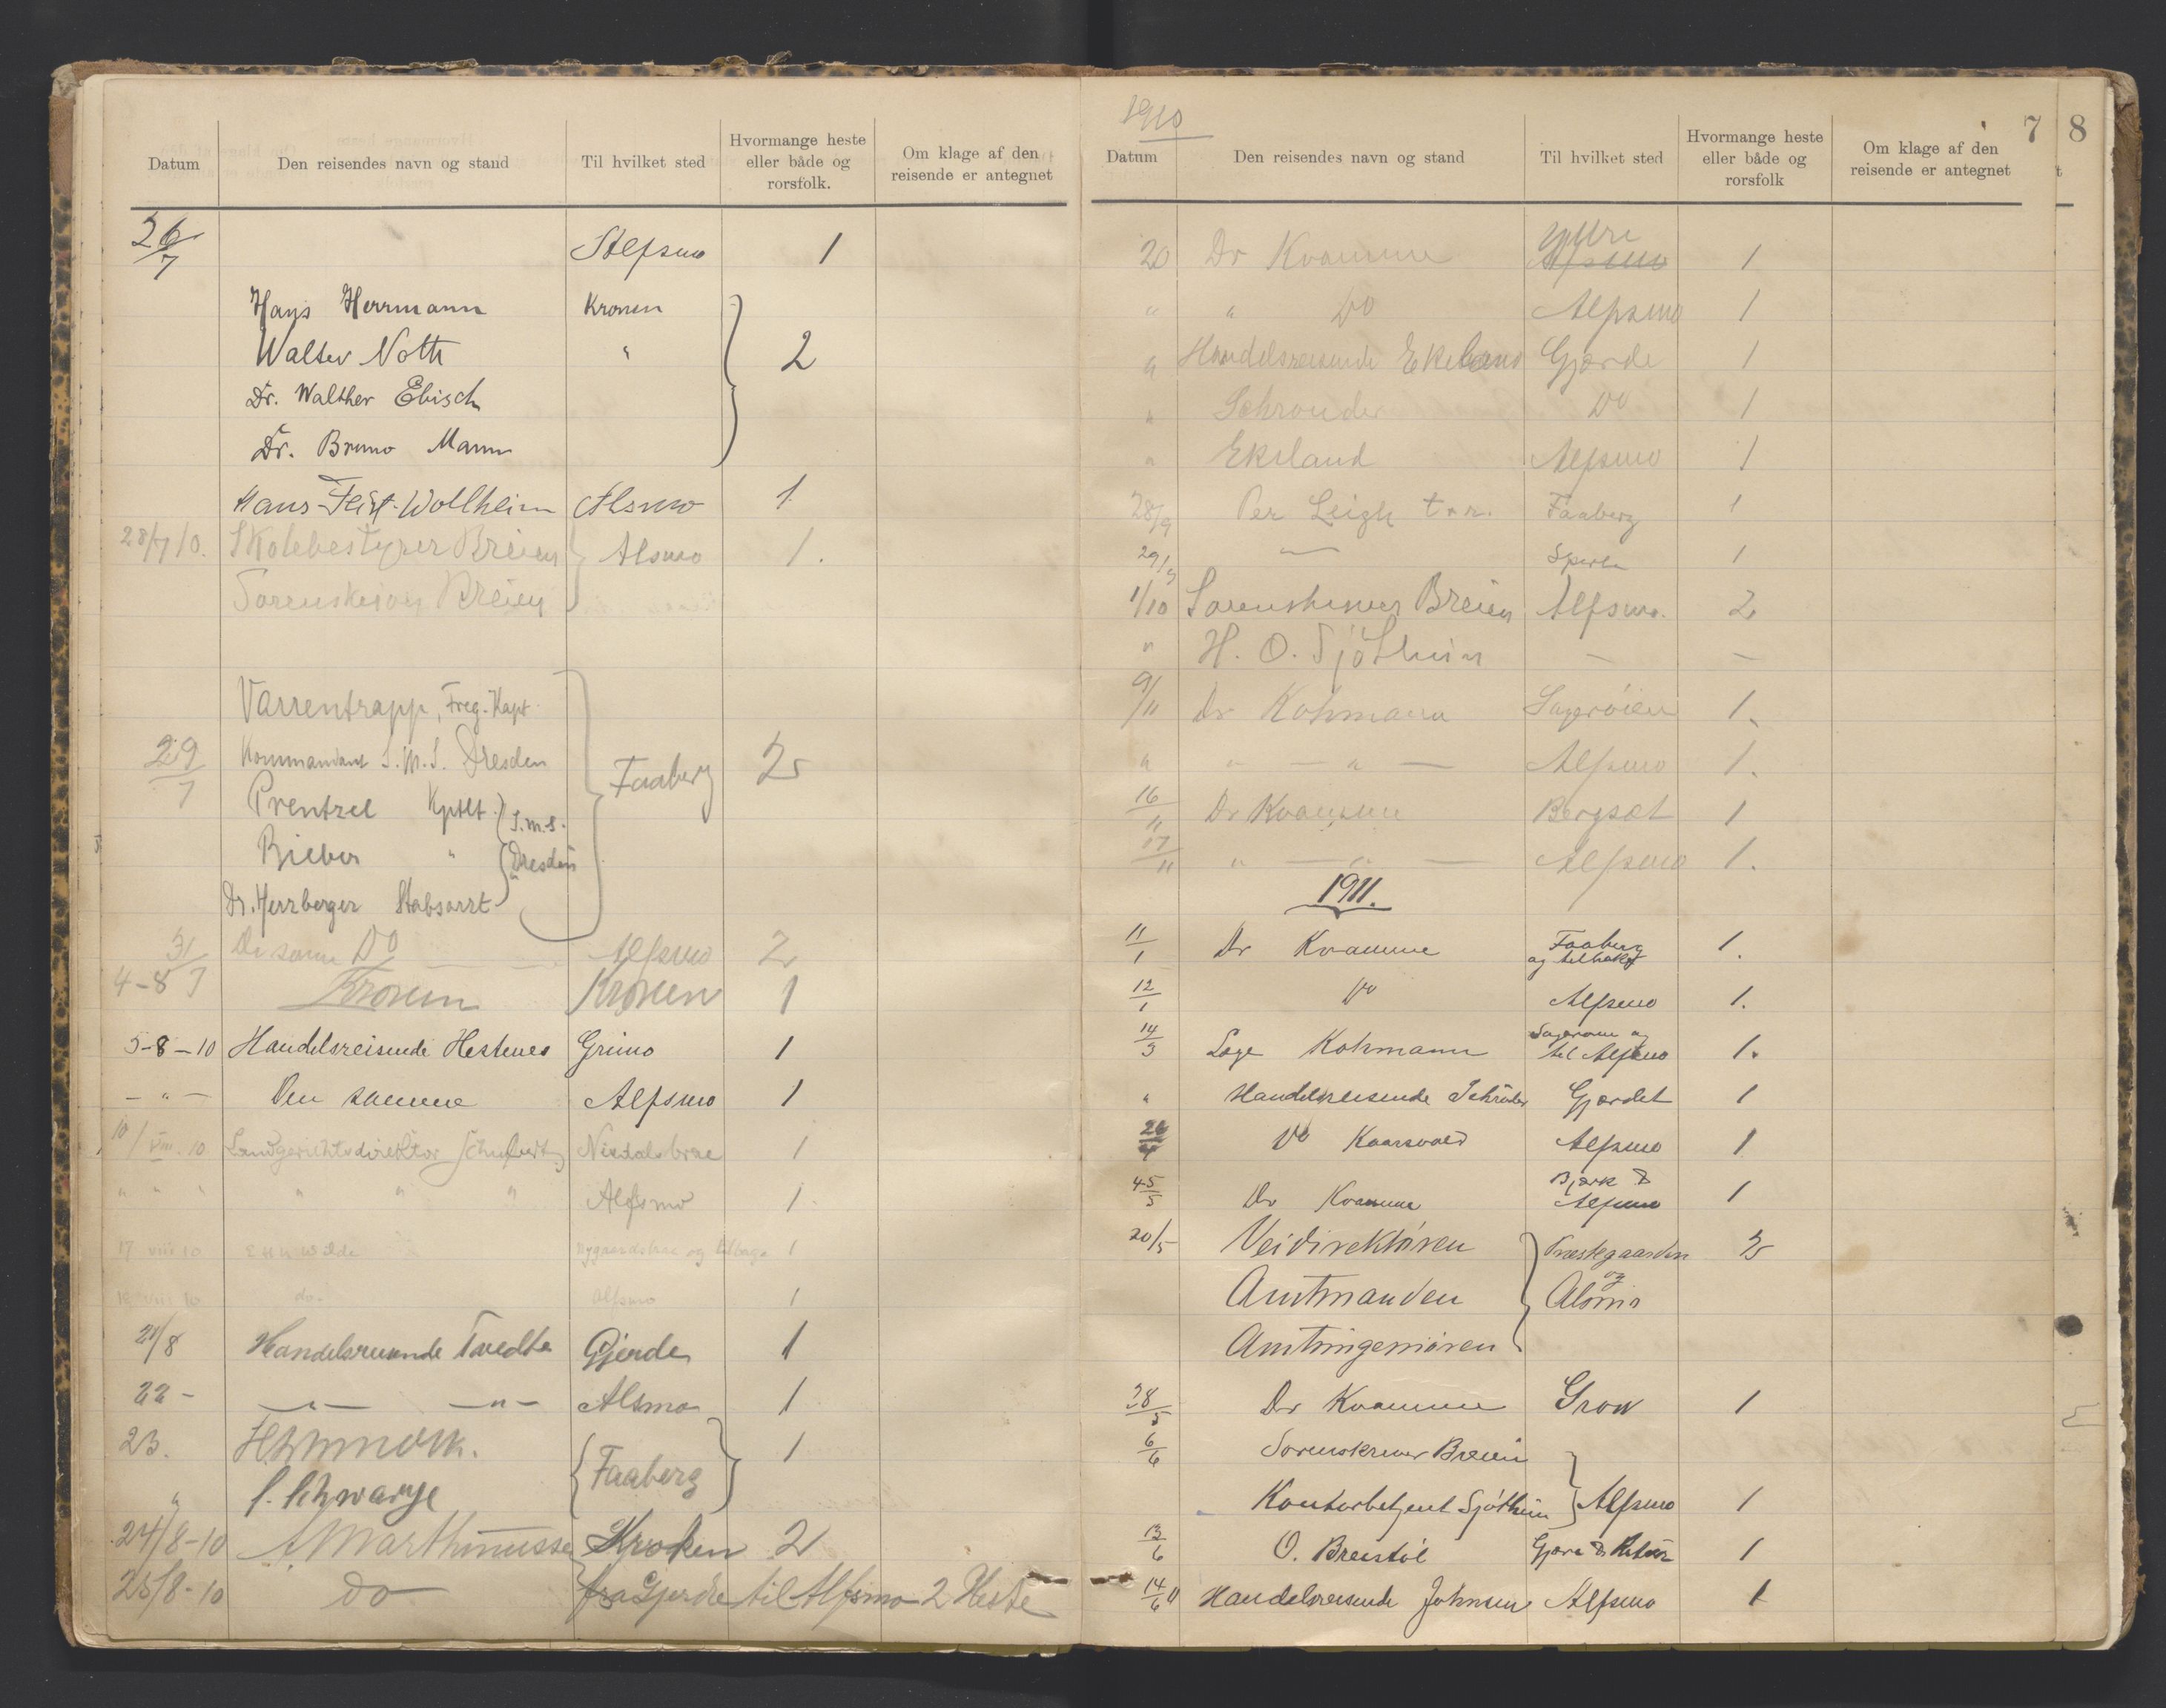 Datum Den reisendes navn og stand Til hvilket sted Hvormange heste eller både og rorsfolk. Om klage af den reisende er antegnet
26/7 Alfsmo 1
Hans Herrmann Kronen
Walter Noth " 2
Dr. Walther Ebisch
Dr. Bruno Mann
Hans Wollheim Alsmo 1
28/7 10. Skolebestyrer Breien Alsmo 1.
Sorenskriver Breien
Varrentrapp, Freg. Kapt.
29/7 Kommandant S.M.S. Dresden Faaberg 2
Prentzel Kptlt. S.M.S.
Bieber " Dresden
Dr. Herzberger Stabsarzt
31/7 De samme Do Alfsmo 2
4-8 Kronen Kronen 1
5-8-10 Handelsreisende Hestenes Grimo 1
- " - Den samme Alfsmo 1
10/VIII. 10 Landgerichtsdirektor Schubert 1
" " " " " " Alfsmo 1
17 VIII 10 Wilde og tilbage 1
18 VIII 10 do. Alfsmo 1
21/8 Handelsreisende Tvedte Gjerde 1
22 - - " - - " - Alsmo 1
23. Faaberg 1
"
24/8-10 A Marthinussen Kroken 2
25/8-10 do fra Gjerde til Alfsmo 2 Heste
1910
7 8
Datum Den reisendes navn og stand Til hvilket sted Hvormange heste eller både og rorsfolk Om klage af den reisende er antegnet
20 Dr Kvamme 1
" " Do Alfsmo 1
" Handelsreisende Ekeland Gjærde 1
" Schrøuder Do 1
" Ekeland Alfsmo 1
28/9 Per Leigh Faaberg 1
29/9 — Sperle 1
1/10 Sorenskriver Breien Alfsmo. 2
" H. O. Sjøtheim — —
9/11 Dr Kohmann Sagerøien 1.
" " — " — Alfsmo 1.
16/11 Dr Kvamme Bergset 1
17/11 " — " — Alfsmo 1.
1911.
11/1 Dr Kvamme Faaberg og tilbake 1.
12/1 Do Alfsmo 1.
14/3 Læge Kohmann til Alfsmo 1.
" Handelsreisende Schrøder Gjærdet 1
Do Kaarsvold Alfsmo 1
Dr Kvamme Bjørk & Alfsmo 1
20/5 Veidirektøren Præstegaarden
Amtmanden og Alsmo
Amtsingeniøren
28/5 Dr Kvamme 1
6/6 Sorenskriver Breien
Kontorbetjent Sjøtheim Alfsmo 1
13/6 O. Breistøl 1
14/6 11 Handelsreisende Johnsen Alfsmo 1